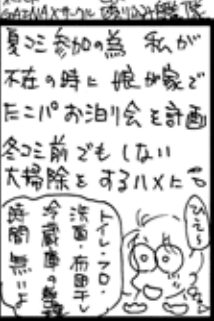 GAINAXサークル 殴り込み艦隊
夏コミ参加の為 私が
不在の時に 娘が家で
たこパお泊り会を計画
冬コミ前でもしない
大掃除をするハメに
ひえ〜
トイレ・フロ・
洗面・布団干し
冷蔵庫の整理
時間無いよ